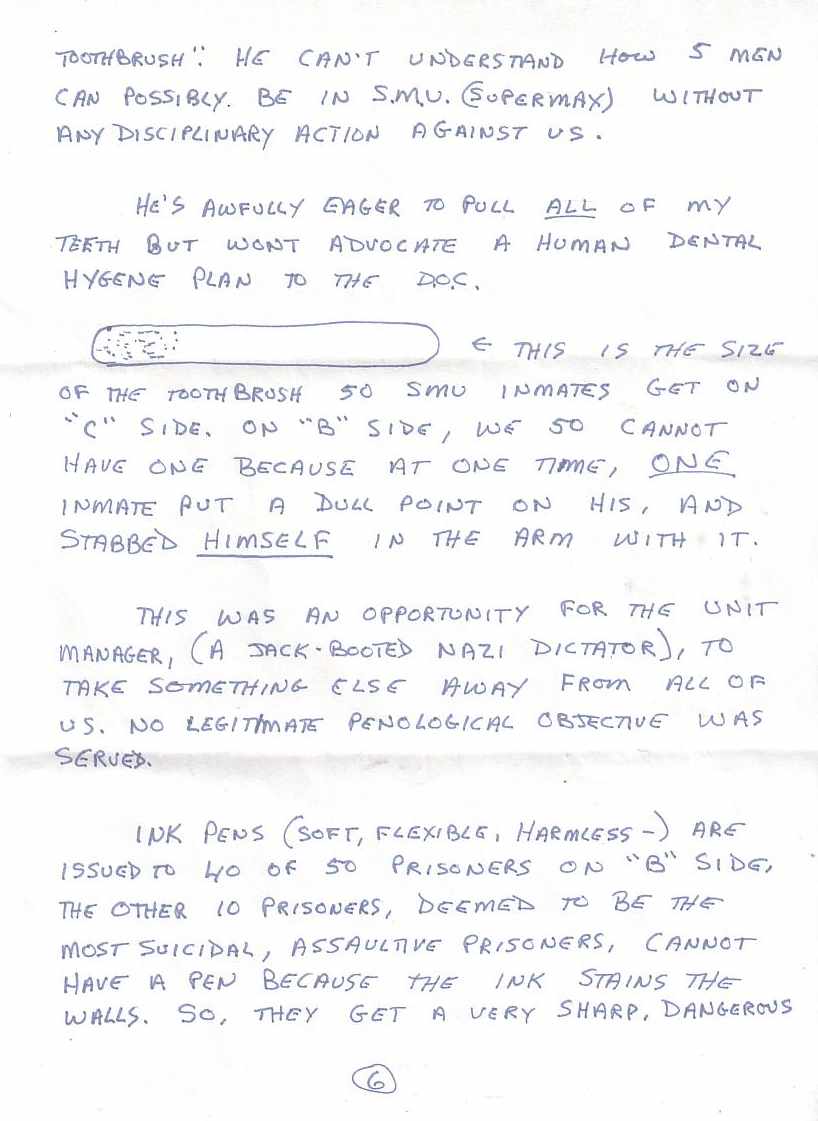 TOOTHBRUSH". HE CAN'T UNDERSTAND HOW 5 MEN
CAN POSSIBLY. BE IN S.M.U. (SUPERMAX) WITHOUT
ANY DISCIPLINARY ACTION AGAINST US.
HE'S AWFULLY EAGER TO PULL ALL OF MY
TEETH BUT WONT ADVOCATE A HUMAN DENTAL
HYGENE PLAN TO THE D.O.C.
← THIS IS THE SIZE
OF THE TOOTHBRUSH 50 SMU INMATES GET ON
"C" SIDE. ON "B" SIDE, WE 50 CANNOT
HAVE ONE BECAUSE AT ONE TIME, ONE
INMATE PUT A DULL POINT ON HIS, AND
STABBED HIMSELF IN THE ARM WITH IT.
THIS WAS AN OPPORTUNITY FOR THE UNIT
MANAGER, (A JACK-BOOTED NAZI DICTATOR), TO
TAKE SOMETHING ELSE AWAY FROM ALL OF
US. NO LEGITIMATE PENOLOGICAL OBJECTIVE WAS
SERVED.
INK PENS (SOFT, FLEXIBLE, HARMLESS-) ARE
ISSUED TO 40 OF 50 PRISONERS ON "B" SIDE,
THE OTHER 10 PRISONERS, DEEMED TO BE THE
MOST SUICIDAL, ASSAULTIVE PRISONERS, CANNOT
HAVE A PEN BECAUSE THE INK STAINS THE
WALLS. SO, THEY GET A VERY SHARP, DANGEROUS
6